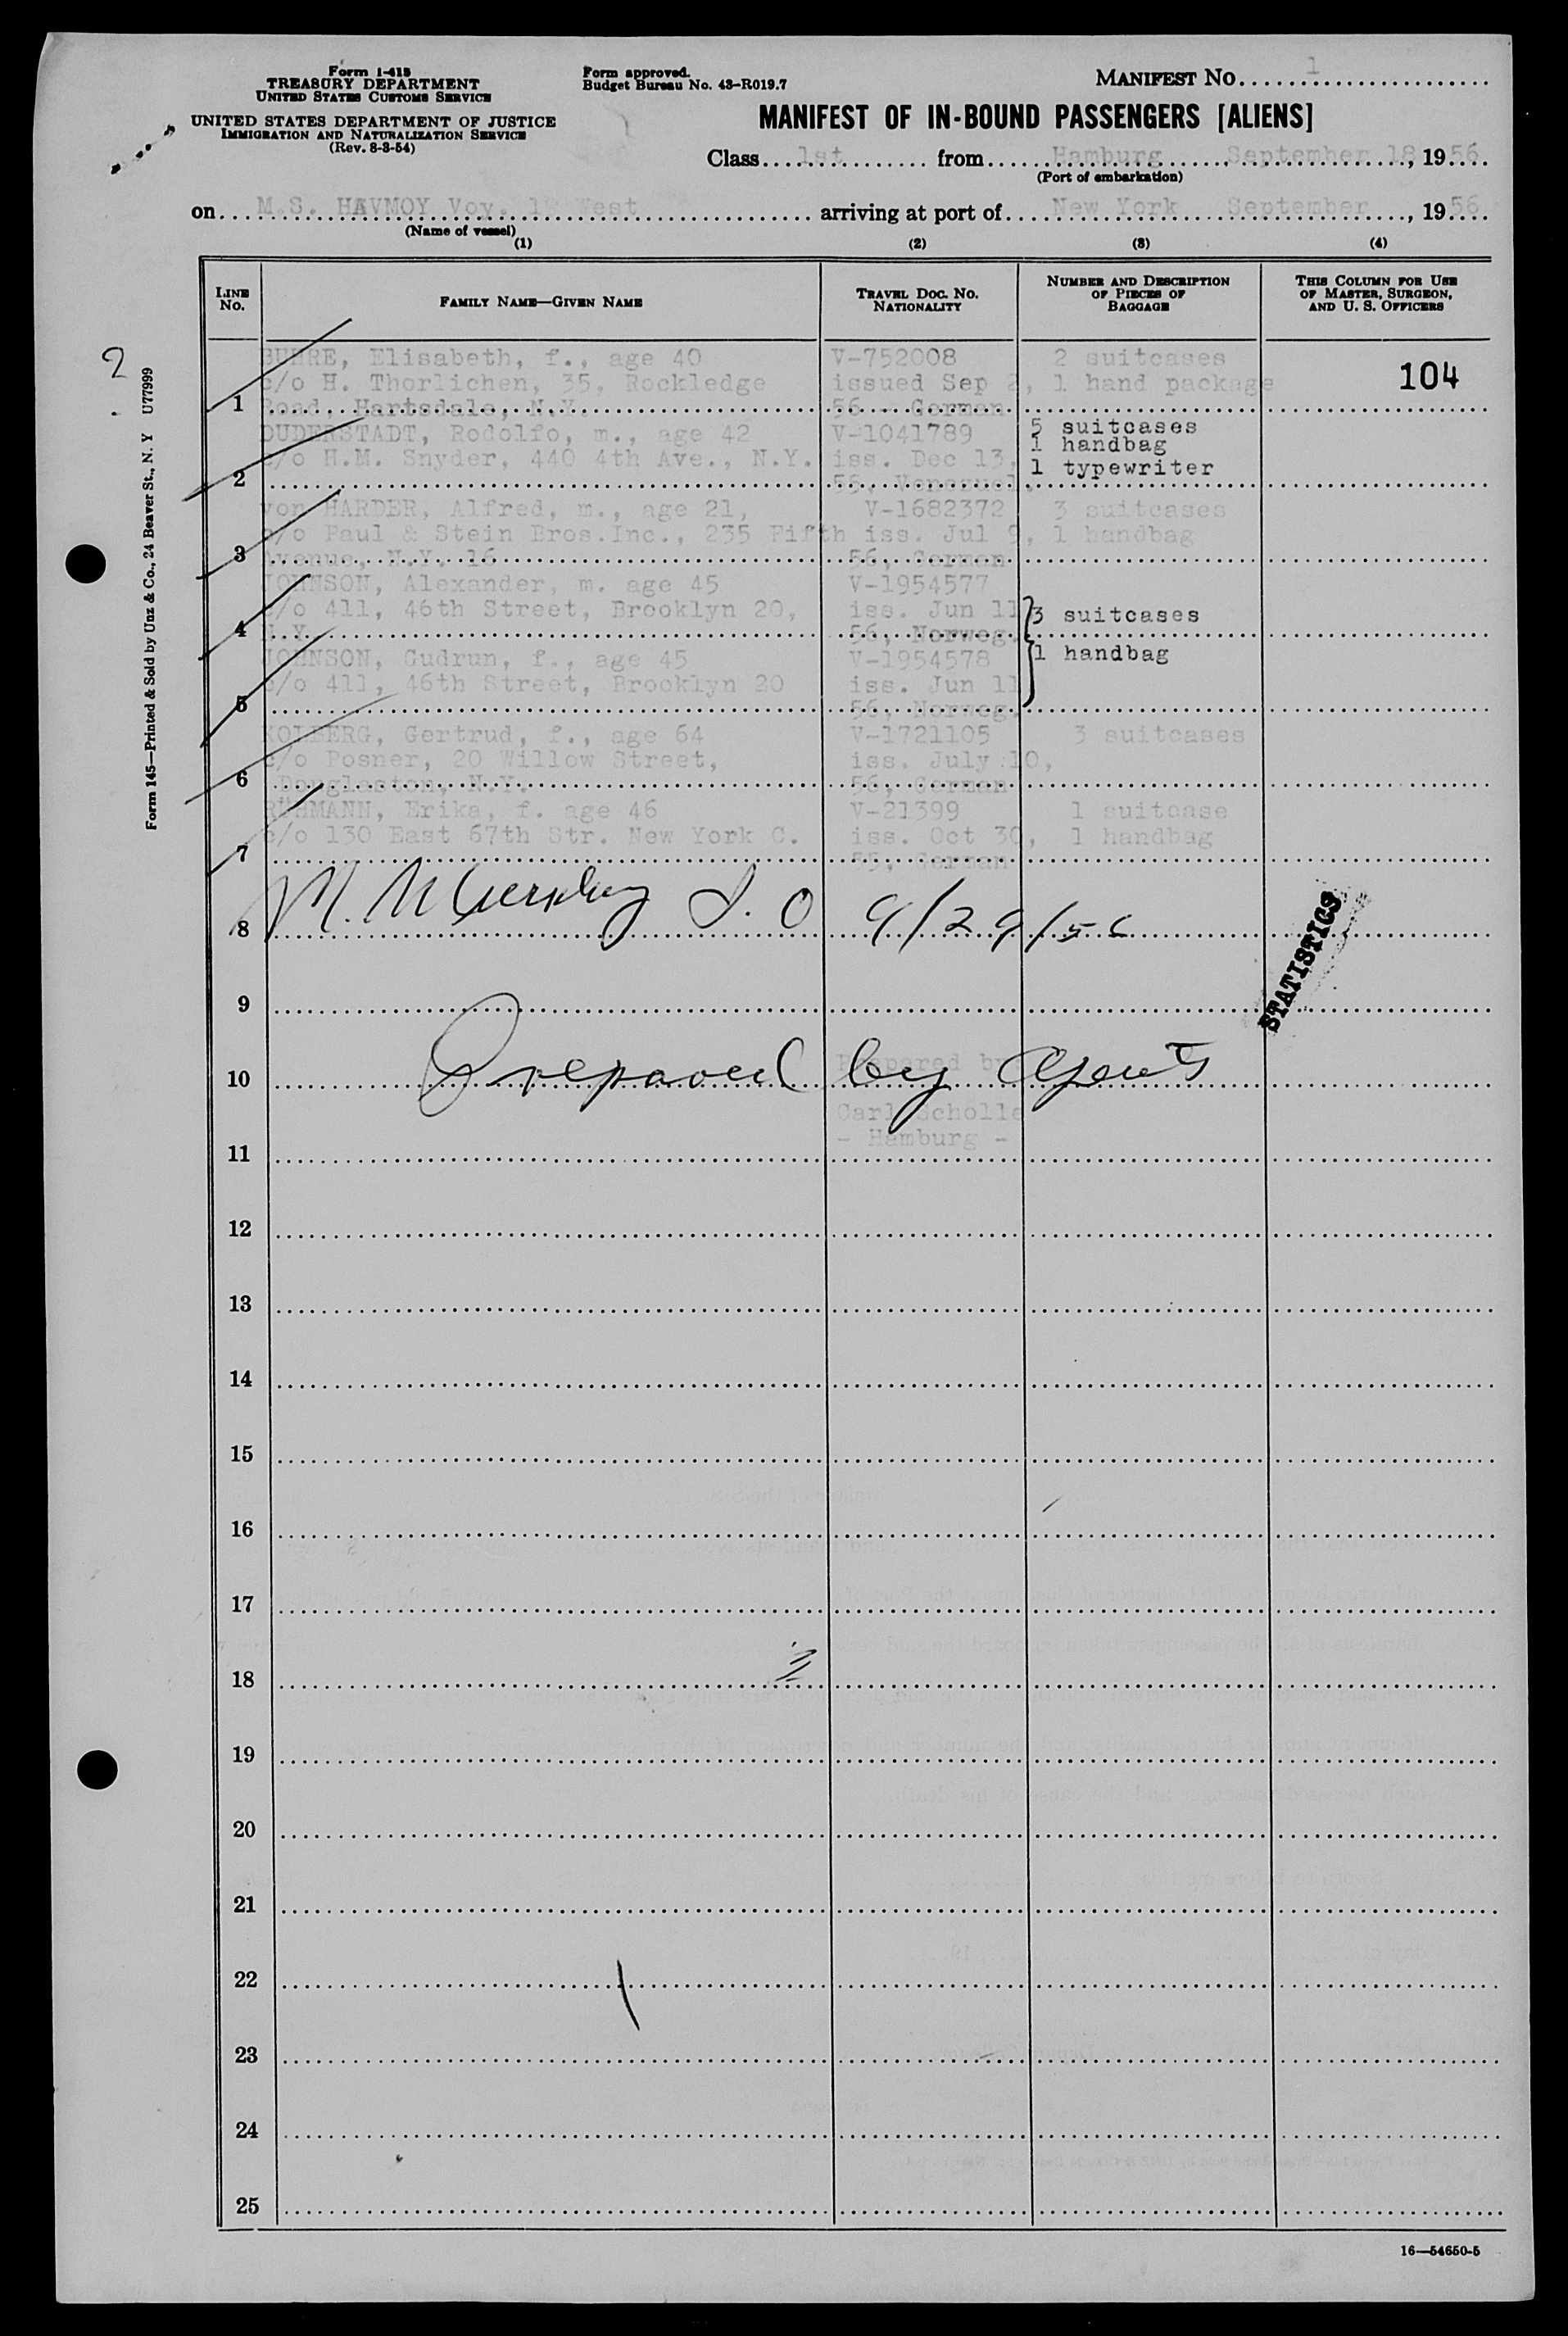 Form I-415
TREASURY DEPARTMENT
UNITED STATES CUSTOMS SERVICE
UNITED STATES DEPARTMENT OF JUSTICE
IMMIGRATION AND NATURALIZATION SERVICE
(Rev. 8-3-54)
Form approved.
Budget Bureau No. 43-R019.7
MANIFEST NO. 1
MANIFEST OF IN-BOUND PASSENGERS [ALIENS]
Class 1st from Hamburg, September 18, 1956
(Port of embarkation)
on M.S. HAVMOY Voy. West arriving at port of New York September, 1956
(Name of vessel)
(1) (2) (3) (4)
LINE NO.
FAMILY NAME—GIVEN NAME
TRAVEL DOC. NO. NATIONALITY
NUMBER AND DESCRIPTION OF PIECES OF BAGGAGE
THIS COLUMN FOR USE OF MASTER, SURGEON, AND U. S. OFFICERS
2
Form 145—Printed & Sold by Unz & Co., 24 Beaver St., N. Y U77999
BUHRE, Elisabeth, f., age 40 V-752008 2 suitcases
c/o H. Thorlichen, 35, Rockledge issued Sep 2, 1 hand package 104
1 Road, Hartsdale, N.Y. 56 - German
DUDERSTADT, Rodolfo, m., age 42 V-1041789 5 suitcases
1 handbag
c/o H.M. Snyder, 440 4th Ave., N.Y. iss. Dec 13, 1 typewriter
2 56, Venezuel.
von HARDER, Alfred, m., age 21, V-1682372 3 suitcases
c/o Paul & Stein Bros.Inc., 235 Fifth iss. Jul 9, 1 handbag
3 Avenue, N.Y. 16 56, German
JOHNSON, Alexander, m. age 45 V-1954577
c/o 411, 46th Street, Brooklyn 20, iss. Jun 11 3 suitcases
4 N.Y. 56, Norweg.
JOHNSON, Gudrun, f., age 45 V-1954578 1 handbag
c/o 411, 46th Street, Brooklyn 20 iss. Jun 11
5 56, Norweg.
KOLBERG, Gertrud, f., age 64 V-1721105 3 suitcases
c/o Posner, 20 Willow Street, iss. July 10,
6 Douglaston, N.Y. 56, German
RÜHMANN, Erika, f. age 46 V-21399 1 suitcase
c/o 130 East 67th Str. New York C. iss. Oct 30, 1 handbag
7 55, German
8 M. I. O 9/29/56
STATISTICS
9
Prepared by
10 Prepared by Agents
Carl Scholle
- Hamburg -
11
12
13
14
15
16
17
18
19
20
21
22
23
24
25
16—54650-5